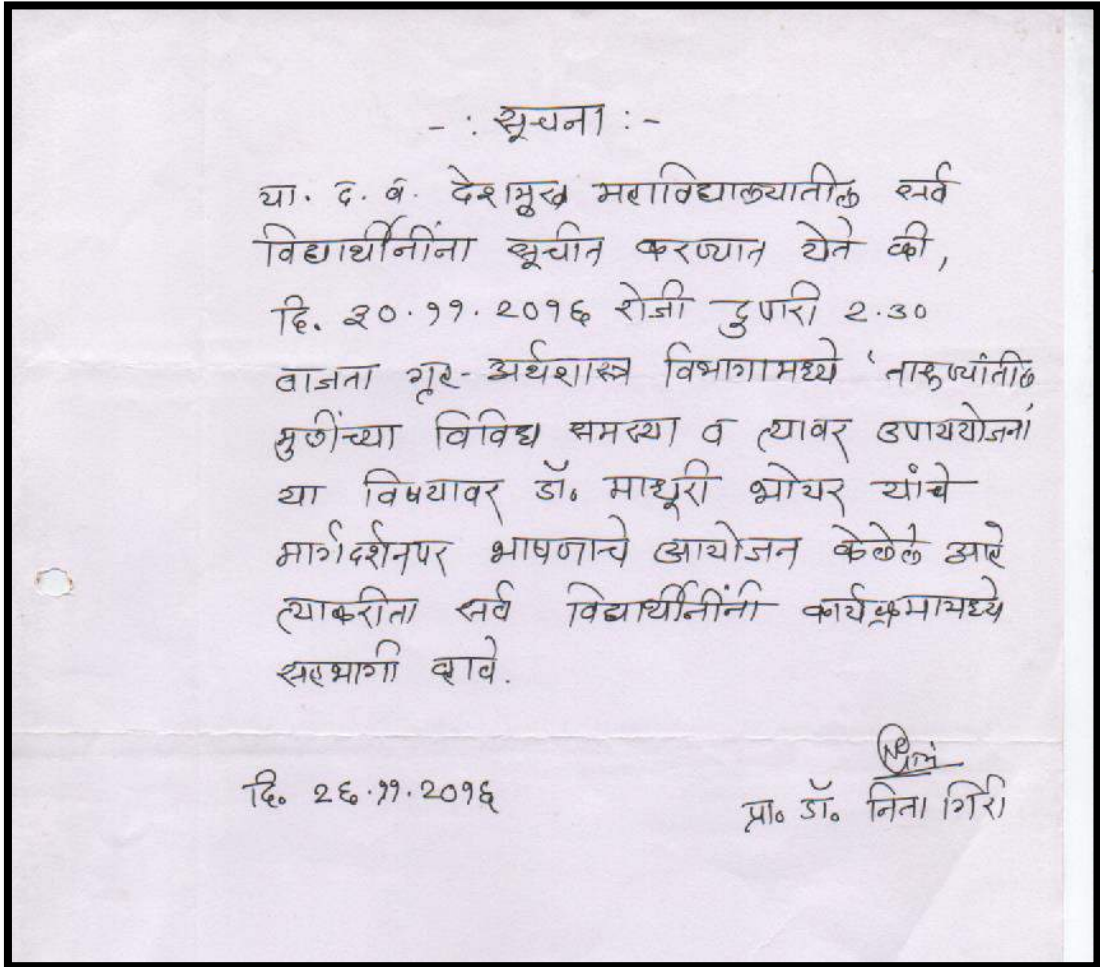 - : सूचना : -
या. द. व. देशमुख महाविद्यालयातील सर्व
विद्यार्थीनींना सूचीत करण्यात येते की,
दि. ३०.११.२०१६ रोजी दुपारी २.३०
वाजता गृह-अर्थशास्त्र विभागामध्ये 'तारूण्यांतील
मुलींच्या विविध समस्या व त्यावर उपाययोजनां'
या विषयावर डॉ. माधूरी भोयर यांचे
मार्गदर्शनपर भाषणाचे आयोजन केलेले आहे
त्याकरीता सर्व विद्यार्थीनींनी कार्यक्रमामध्ये
सहभागी व्हावे.
दि. २६.११.२०१६
प्रा. डॉ. निता गिरी